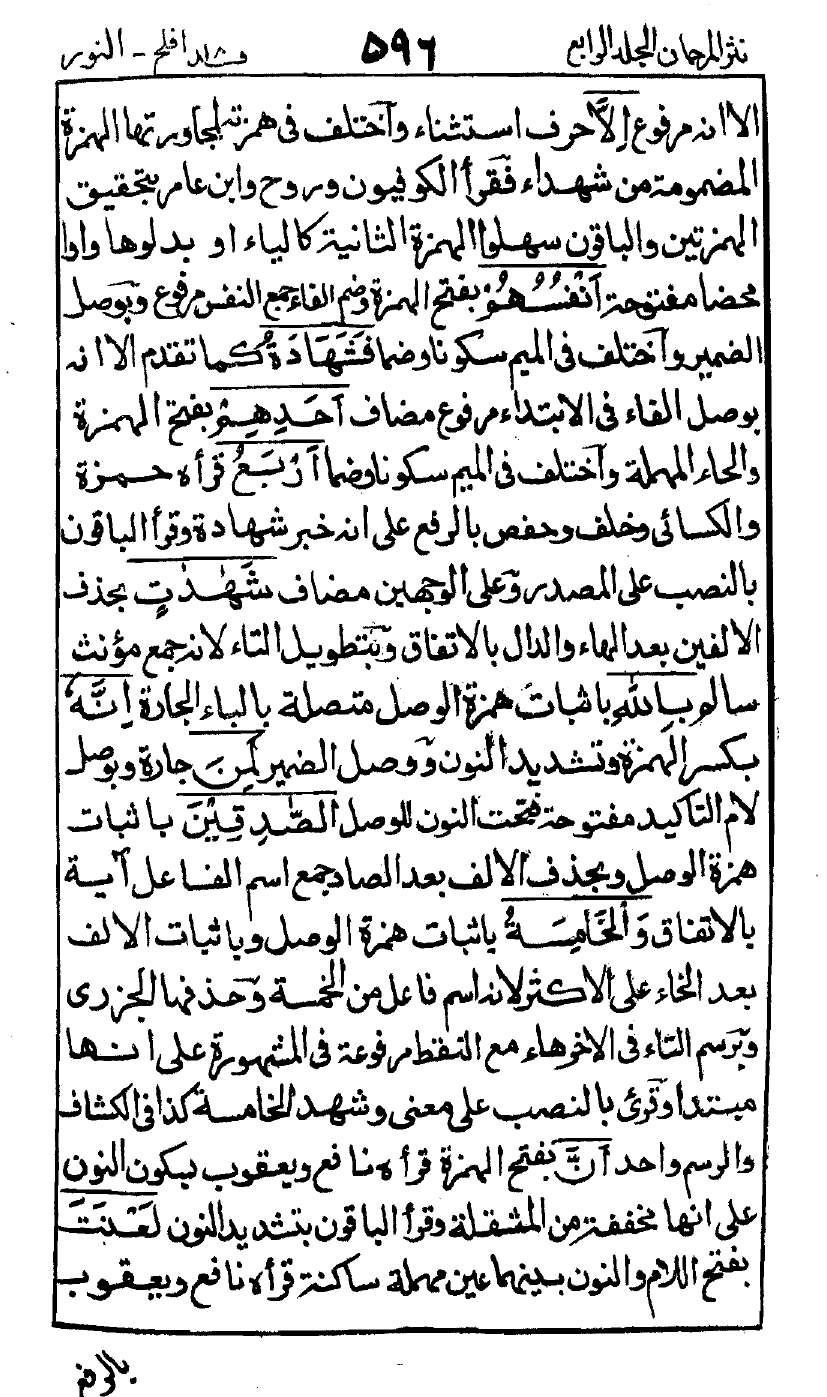 نثر المرجان المجلد الرابع ٥٩٦ قد افلح - النور
الا انه مرفوع اِلَّا حرف استثناء وآختلف فى همزته لمجاورتها الهمزة
المضمومة من شهداء فَقرأ الكوفيون وروح وابن عامر بتحقيق
الهمزتين والباقون سهلوا الهمزة الثانية كالياء او بدلوها واوا
محضا مفتوحة اَنْفُسُهُمْ بفتح الهمزة وضم الفاء جمع النفس مرفوع وَبوصل
الضمير وآختلف فى الميم سكونا وضما فَشَهَادَةُ كما تقدم الا انه
بوصل الفاء فى الابتداء مرفوع مضاف اَحَدِهِمْ بفتح الهمزة
والحاء المهملة وآختلف فى الميم سكونا وضما اَرْبَعُ قرأه حمزة
والكسائى وخلف وحفص بالرفع على انه خبر شهادة وقرأ الباقون
بالنصب على المصدر وَعلى الوجهين مضاف شَهٰدٰتٍ بحذف
الالفين بعد الهاء والدال بالاتفاق وَبتطويل التاء لانه جمع مؤنث
سالم بِاللّٰهِ باثبات همزة الوصل متصلة بالباء الجارة اِنَّهُ
بكسر الهمزة وتشديد النون وَوصل الضمير لَمِنَ جارة وبوصل
لام التاكيد مفتوحة فتحت النون للوصل الصّٰدِقِيْنَ باثبات
همزة الوصل وبحذف الالف بعد الصاد جمع اسم الفاعل آية
بالاتفاق وَالْخَامِسَةُ باثبات همزة الوصل وباثبات الالف
بعد الخاء على الاكثر لانه اسم فاعل من الخمسة وَحذفها الجزرى
وَبرسم التاء فى الاخر هاء مع النقط مرفوعة فى المشهورة على انها
مبتدا وَقرئ بالنصب على معنى وشهد الخامسة كذا فى الكشاف
والرسم واحد اَنَّ بفتح الهمزة قرأه نافع ويعقوب بسكون النون
على انها مخففة من المثقلة وقرأ الباقون بتشديد النون لَعْنَتَ
بفتح اللام والنون بينهما عين مهملة ساكنة قرأه نافع ويعقوب
بالرفع